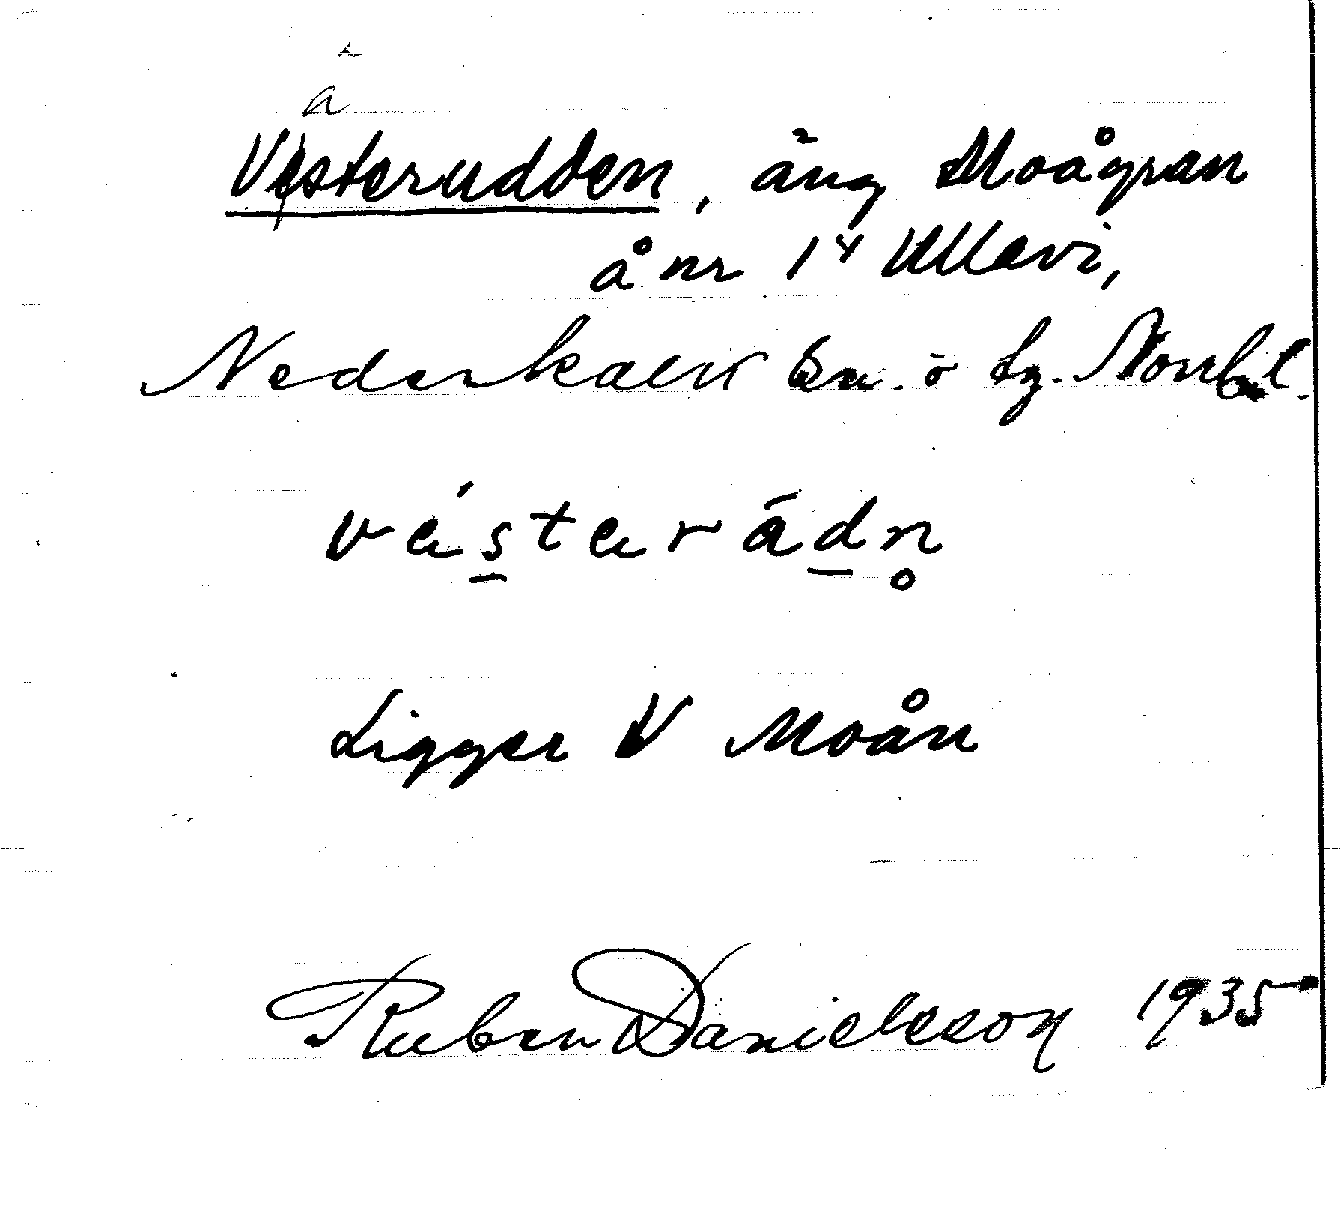 ä
Vesterudden, äng Moågran
å nr 14 Ullavi,
Nederkalix sn. o tg. Norrb. l.
vé̱sterādn̥
Ligger V Moån
Ruben Danielsson 1935